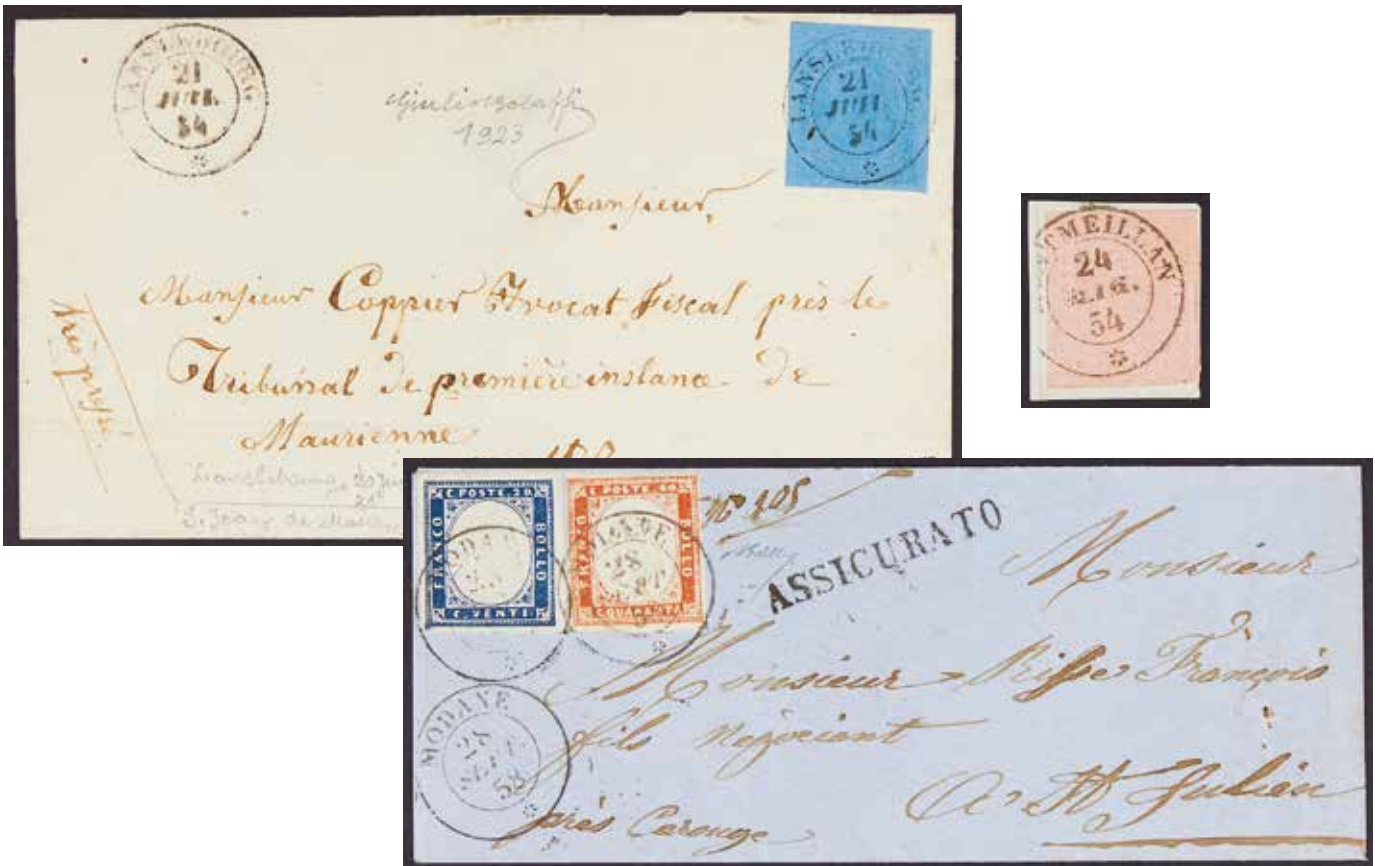 LANSLEBOURG
21
JUIL
54
LANSLEBOURG
21
JUIL
54
1923
Monsieur
Monsieur Coppier Avocat Fiscal près le
Tribunal de première instance de
Maurienne
très pressé
Lanslebourg
S. Jean de Maur
TMEILLAN
24
54
C. POSTE. 20.
FRANCO
BOLLO
C. VENTI.
C. POSTE. 40.
FRANCO
BOLLO
C. QUARANTA
28
N° 105
ASSICURATO
Monsieur
Monsieur Risse François
fils négociant
A St Julien
près Carouge
MODANE
SEPT
58